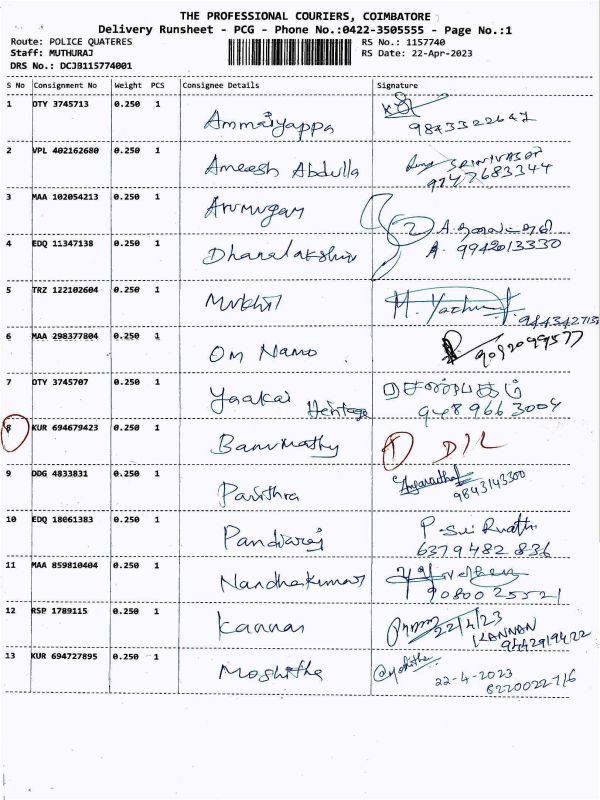 THE PROFESSIONAL COURIERS, COIMBATORE
Delivery Runsheet - PCG - Phone No.:0422-3505555 - Page No.:1
Route: POLICE QUATERES
RS No.: 1157740
Staff: MUTHURAJ
RS Date: 22-Apr-2023
DRS No.: DCJB115774001
S No Consignment No Weight PCS Consignee Details Signature
1 OTY 3745713 0.250 1 Ammaiyappa
2 VPL 402162680 0.250 1 Ameesh Abdulla
SRINIVASAN
9747683344
3 MAA 102054213 0.250 1 Arumugam
4 EDQ 11347138 0.250 1 Dhanalakshmi
2
A. 9942013330
5 TRZ 122102604 0.250 1 Mukhil
6 MAA 298377804 0.250 1 Om Namo
9092099577
7 OTY 3745707 0.250 1 Yaakai Heritage
செண்பகம்
9489663004
8 KUR 694679423 0.250 1 Banumathy
D/L
9 DDG 4833831 0.250 1 Pavithra
9843143300
10 EDQ 18061383 0.250 1 Pandiaraj
P. Sri Ruath
6379482836
11 MAA 859810404 0.250 1 Nandhakumar
9080025521
12 RSP 1789115 0.250 1 Kannan
22/4/23
KANNAN
9442919422
13 KUR 694727895 0.250 1 Moshitha
22-4-2023
8220022716